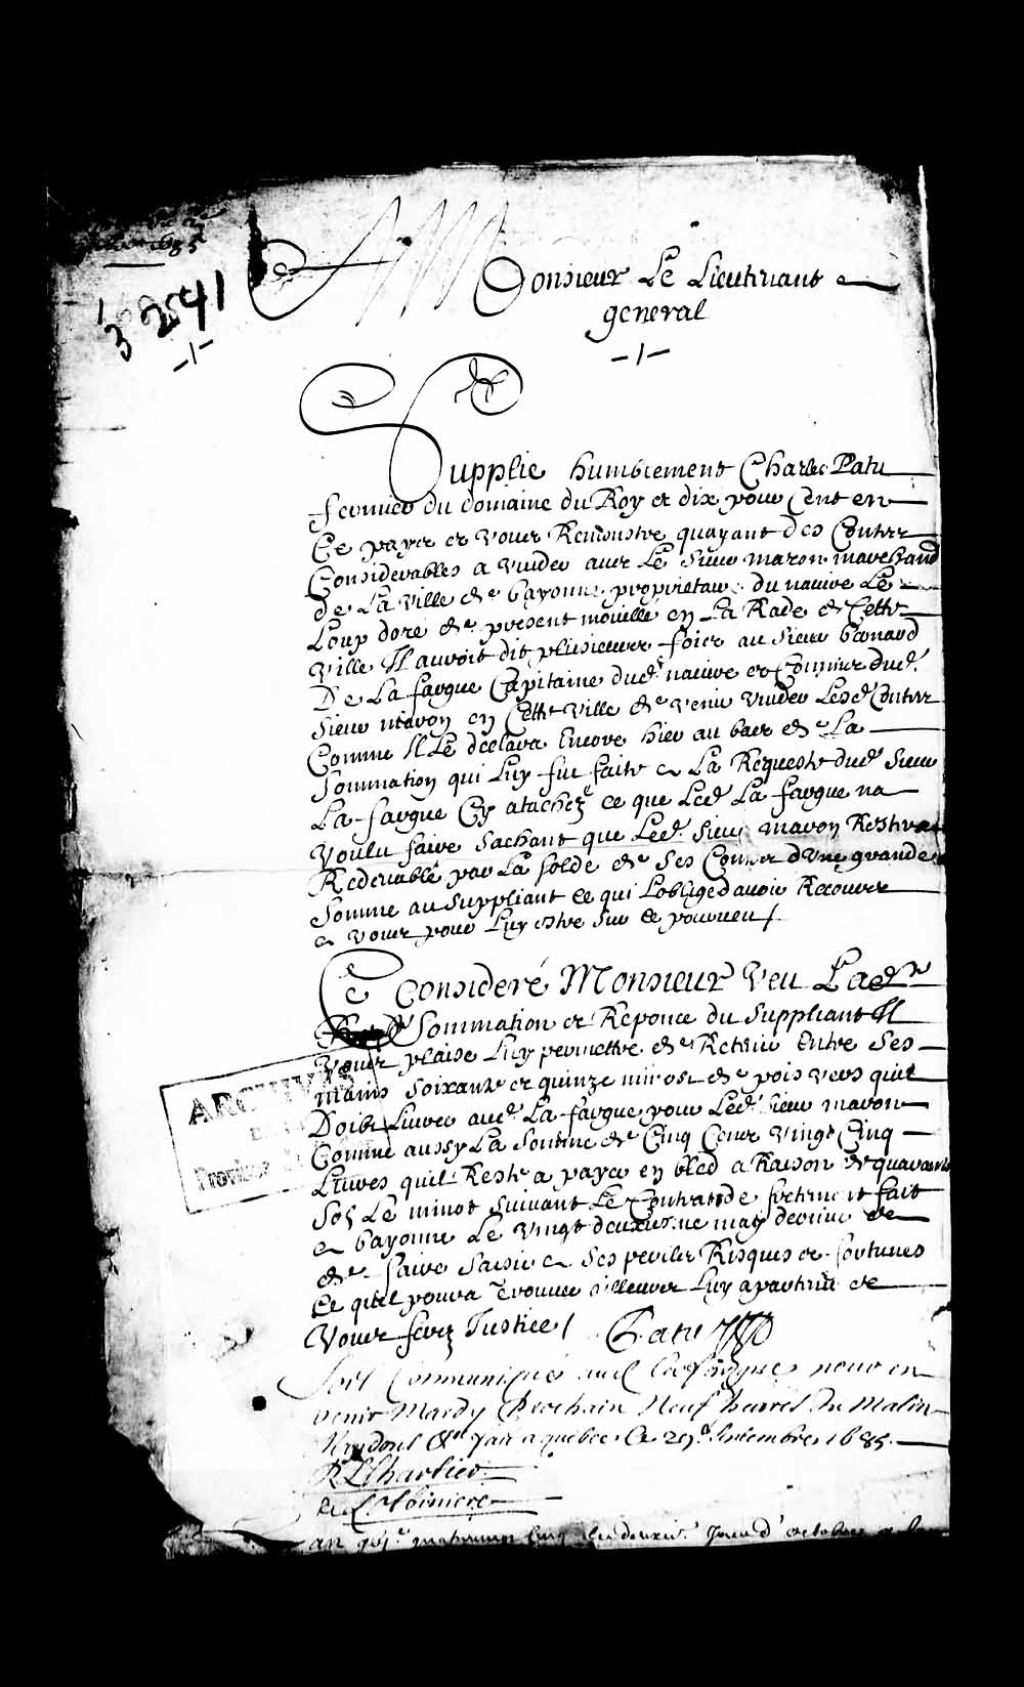 1685
2541
3
-/-
A Monsieur Le Lieutenant
general
-/-
Supplie humblement Charles Patu
fermier du domaine du Roy et dix pour Cent en
Ce payes et vous Remonstre quayant des Contes
Considerables a vuider avec Le Sieur maron marchand
de La Ville de bayonne proprietaire du navire Le
Loup doré de present mouillé en La Rade de Cette
ville Il auroit dit plusieures foies au sieur bernard
De La fargue Capitaine dud. navire et Commis dud.
Sieur maron en Cette ville de venir vuider Lesd Contes
Comme Il Le declara Encore hier au bas de La
Sommation qui Luy fut faite a La Requeste dud Sieur
La fargue Cy atachez ce que Led La fargue na
voulu faire Sachant que Led. Sieur maron Restera
Redevable par La solde de Ses Contes d'Une grande
Somme au Suppliant ce qui Loblige davoir Recours
a vous pour Luy estre sur ce pourveu /.
Ce Consideré Monsieur Veu Lade
Sommation et Reponce du Suppliant Il
Vous plaise Luy permettre de Retenir Entre Ses
mains Soixante et quinze minost de pois vers quil
Doibt Livrer aud La fargue pour Led. Sieur maron
Comme aussy La Somme de Cinq Cens vingt Cinq
Livres quil Reste a payer en bled a Raison de quarante
Sol Le minot Suivant Le Contrat de fretement fait
a bayonne Le vingt deuxiesme may dernier et
de faire Saisir a Ses perilez Risques et fortunes
Ce quil poura Trouver dilleures Luy apartenir et
Vous ferez Justice / Patu
Soit Communiqué aud Lafargue pour en
venir Mardy Prochain Neuf heures Du Matin
Mandons &a fait a quebec Ce 29e. Septembre 1685.
R L Chartier
de Lotbiniere
ARCHIVES
DE LA
Province de